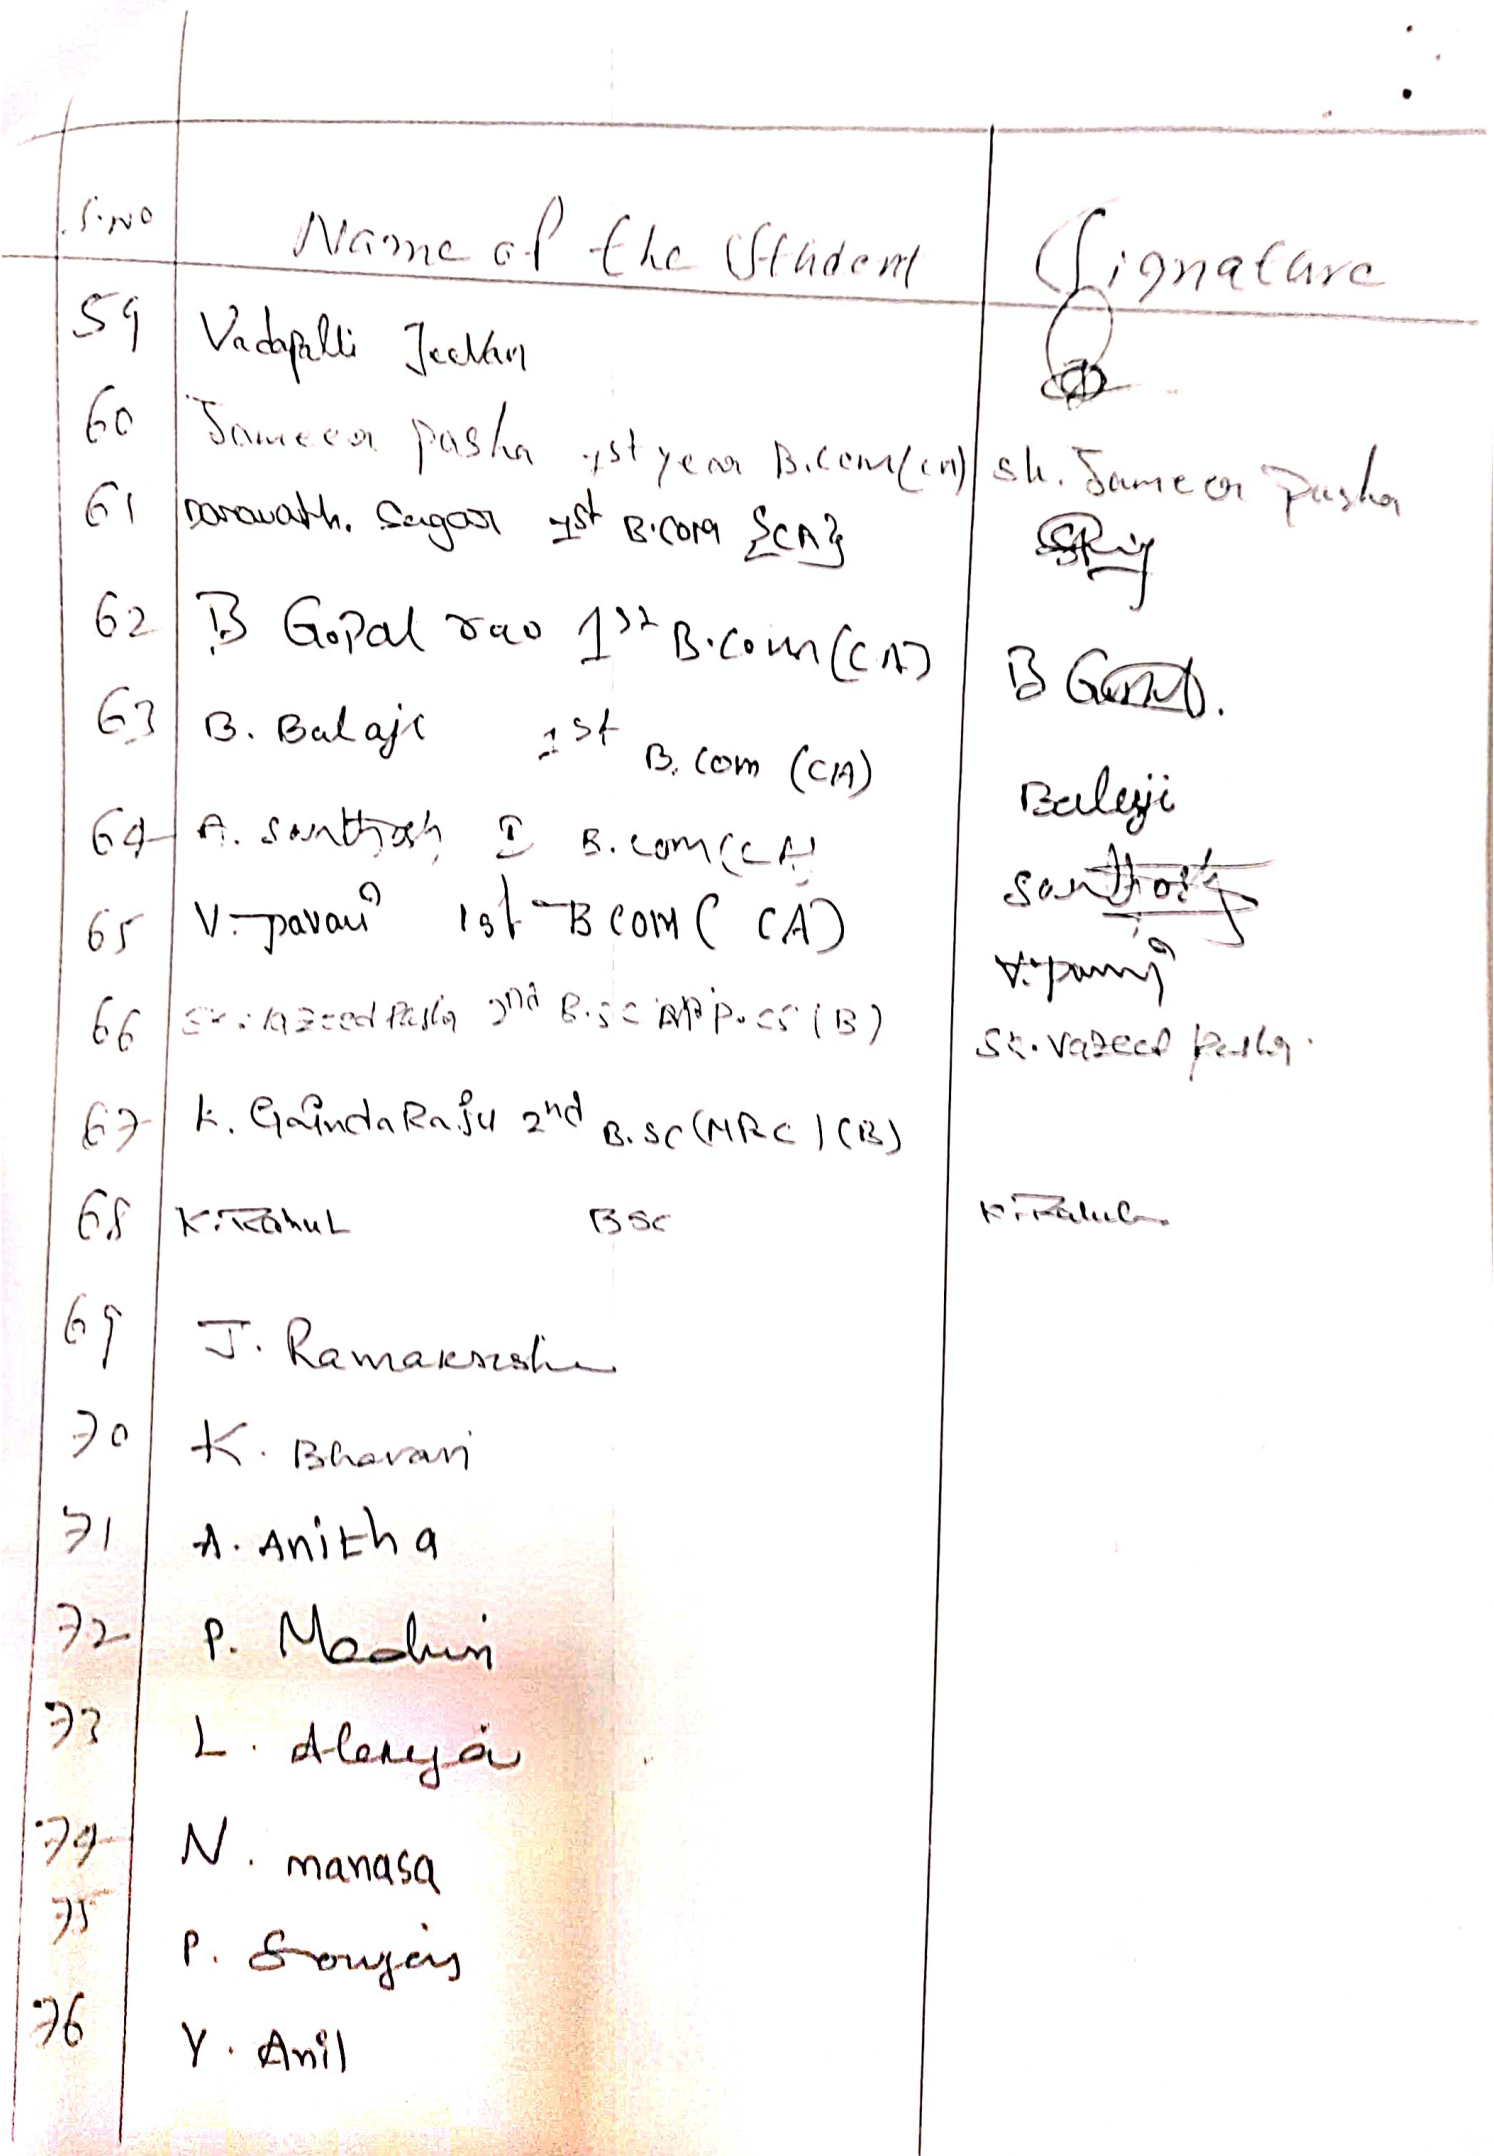 S.NO Name of the Student Signature
59 Vadapalli Jeevan
60 Jameer pasha 1st year B.com(CA) sk. Jameer pasha
61 Darawath. Sagar 1st B.com {CA}
62 B Gopal rao 1st B.com (CA) B
63 B. Balaji 1st B. com (CA) Balaji
64 A. Santhosh I B.com(CA) Santhosh
65 V. pavani 1st B COM ( CA) V. pavani
66 Sk. Vazeed Pasha 2nd B.sc App.cs (B) Sk. Vazeed Pasha.
67 K. Govinda Raju 2nd B.SC (MPC) (B)
68 K. Rahul BSC K. Rahul
69 J. Ramakrishna
70 K. Bhavani
71 A. Anitha
72 P. Madhuri
73 L. Alekya
74 N. manasa
75 P. Soujanya
76 Y. Anil